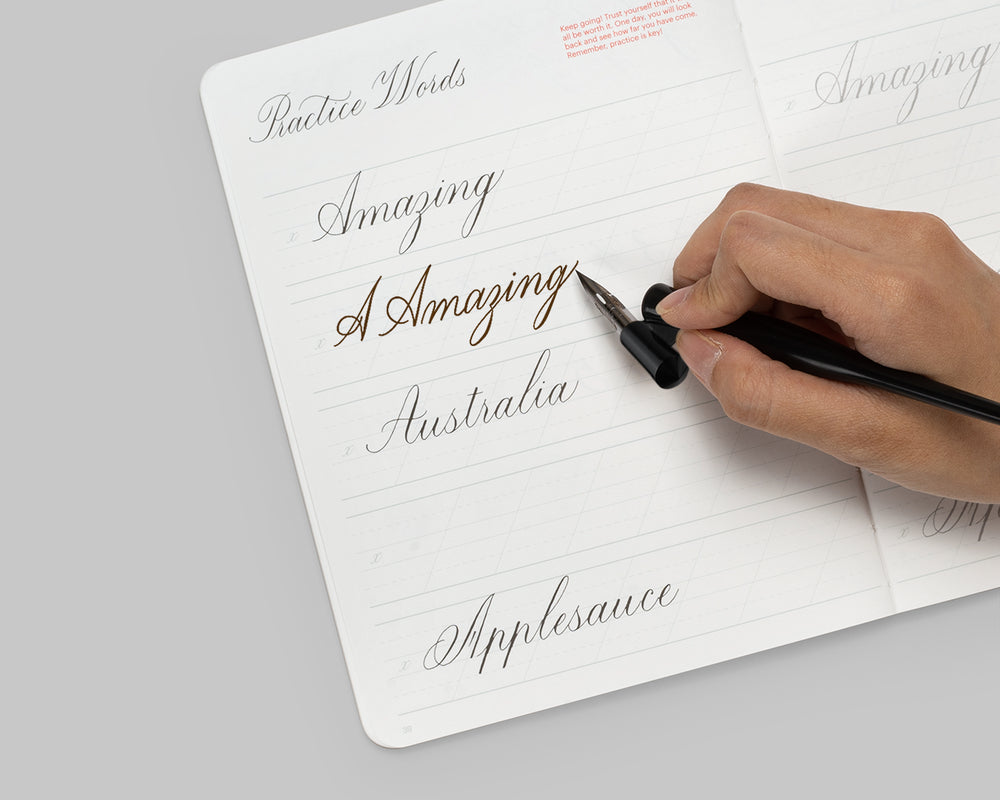 Keep going! Trust yourself that it
all be worth it. One day, you will look
back and see how far you have come.
Remember, practice is key!
Practice Words
x Amazing
x A Amazing
x Australia
x
x Applesauce
x Amazing
x